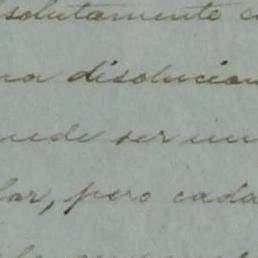 solutamente c
na disolucion
uede ser un
lar, pero cada